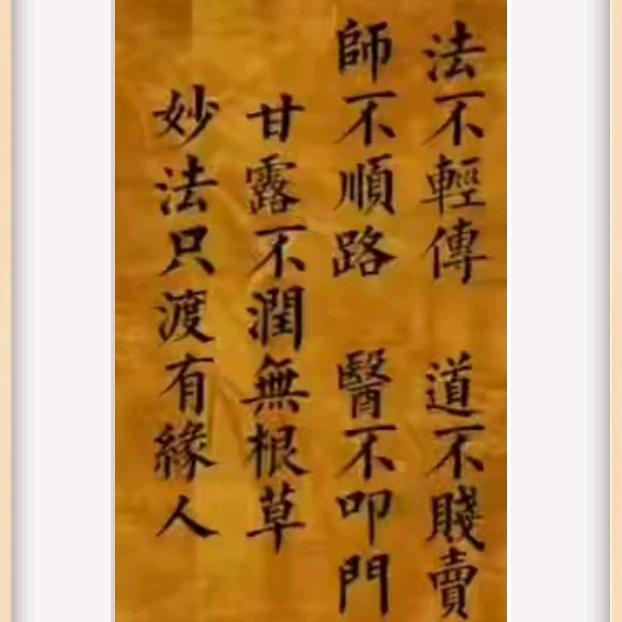 法不輕傳 道不賤賣
師不順路 醫不叩門
甘露不潤無根草
妙法只渡有緣人